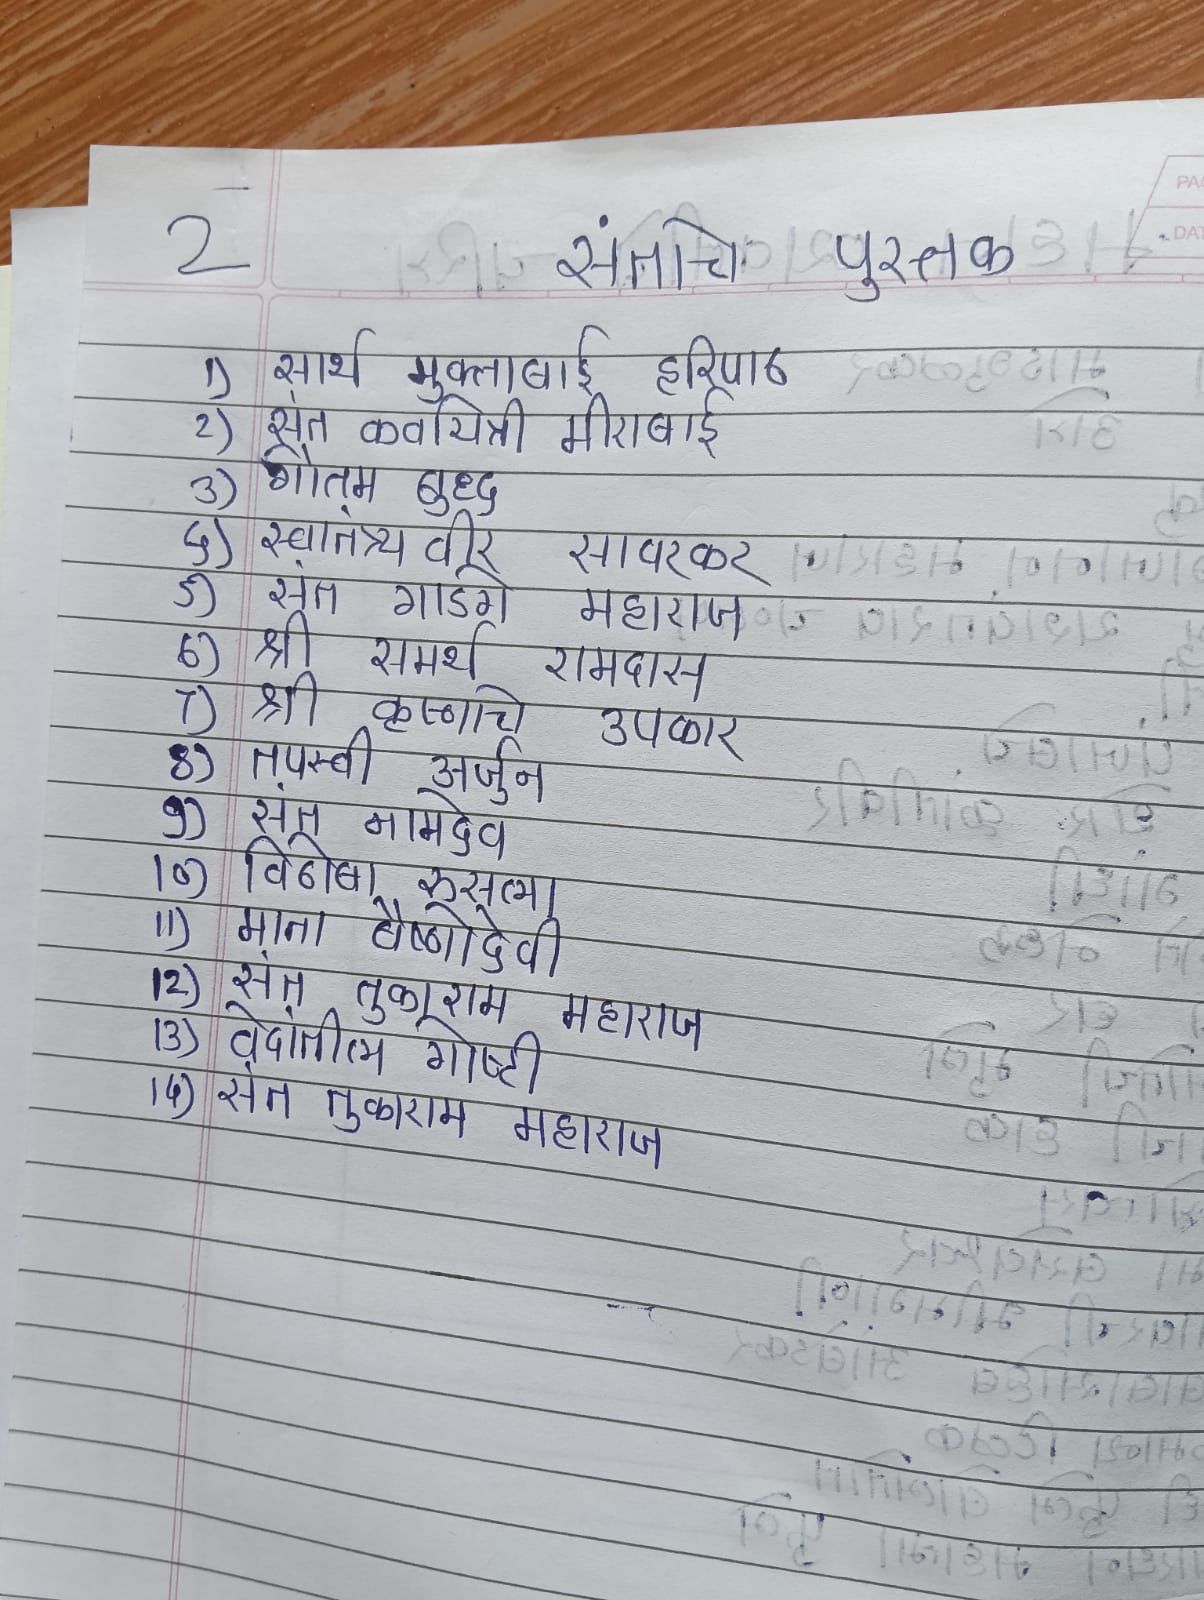 2 संताचे पुस्तक
1) सार्थ मुक्ताबाई हरिपाठ
2) संत कवयित्री मीराबाई
3) गौतम बुध्द
4) स्वातंत्र्य वीर सावरकर
5) संत गाडगे महाराज
6) श्री समर्थ रामदास
7) श्री कृष्णाचे उपकार
8) तपस्वी अर्जुन
9) संत नामदेव
10) विठोबा
11) माता वैष्णोदेवी
12) संत तुकाराम महाराज
13) वेदांतील गोष्टी
14) संत तुकाराम महाराज